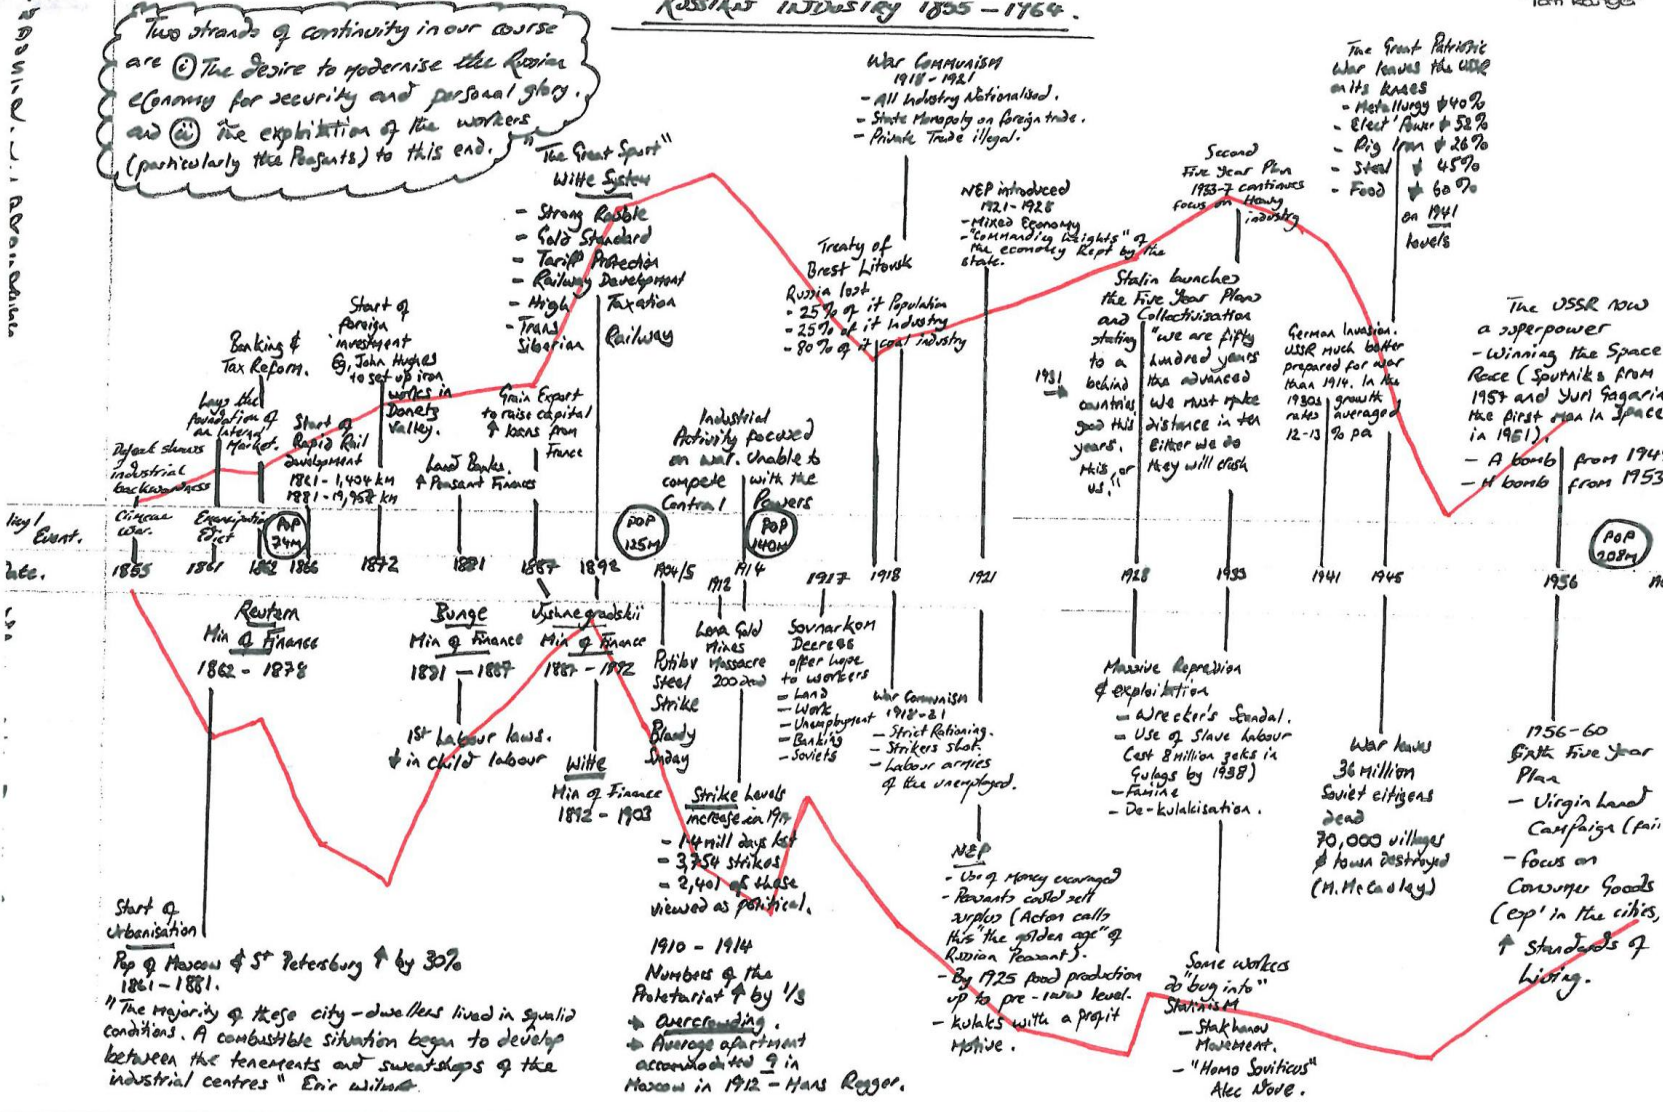 RUSSIAN INDUSTRY 1855 – 1964.
Two strands of continuity in our course
are (i) The desire to modernise the Russian
economy for security and personal glory.
and (ii) The exploitation of the workers
(particularly the Peasants) to this end.
Defeat shows
industrial
backwardness
Lays the
foundation of
an Internal
Market.
Banking &
Tax Reform.
Start of
Rapid Rail
development
1861 – 1,404 km
Start of
foreign
investment
Eg, John Hughes
to set up iron
works in
Donetz
Valley.
Land Banks.
↑ Peasant Finances
Grain Export
to raise capital
↑ loans from
France
"The Great Spurt"
Witte System
- Strong Rouble
- Gold Standard
- Tariff Protection
- Railway Development
- High Taxation
- Trans
Siberian Railway
Industrial
Activity focused
on war. Unable to
compete with the
Central Powers
Treaty of
Brest Litovsk
Russia lost
- 25% of it Population
- 25% of it Industry
- 80% of it coal industry
War Communism
1918 – 1921
- All Industry Nationalised.
- State Monopoly on foreign trade.
- Private Trade illegal.
NEP introduced
1921 – 1928
- Mixed Economy
- "Commanding heights" of
the economy kept by the
state.
Stalin launches
the Five Year Plans
and Collectivisation
stating "we are fifty
to a hundred years
behind the advanced
countries We must make
good this distance in ten
years. Either we do
this, or they will crush
us."
1931
Second
Five Year Plan
1933-7 continues
focus on Heavy
industry
German Invasion.
USSR much better
prepared for war
than 1914. In the
1930s growth
rates averaged
12-13 % pa
The Great Patriotic
War leaves the USSR
on its knees
- Metallurgy ↓ 40%
- Elect' Power ↓ 52%
- Pig Iron ↓ 26%
- Steel ↓ 45%
- Food ↓ 60%
on 1941
levels
The USSR now
a superpower
- Winning the Space
Race (Sputniks from
1957 and Yuri Gagarin
the first man in space
in 1961).
- A bomb from 194
- H bomb from 1953
Event.
Crimean War.
Emancipation Edict
POP 74M
POP 125M
POP 140M
POP 208M
Date.
1855 1861 1862 1866 1872 1881 1887 1892 1904/5 1912 1914 1917 1918 1921 1928 1933 1941 1945 1956
Reutern
Min of Finance
1862 – 1878
Bunge
Min of Finance
1881 – 1887
1st Labour laws.
↓ in child labour
Vyshnegradskii
Min of Finance
1887 – 1892
Witte
Min of Finance
1892 – 1903
Putilov
Steel
Strike
Bloody
Sunday
Lena Gold
Mines
Massacre
200 dead
Strike Levels
increase in 1914
- 1.4 mill days lost
- 3,754 strikes
- 2,401 of these
viewed as political.
1910 – 1914
Numbers of the
Proletariat ↑ by 1/3
→ Overcrowding.
→ Average apartment
accommodated 9 in
Moscow in 1912 – Hans Rogger.
Sovnarkom
Decrees
offer hope
to workers
- Land
- Work
- Unemployment
- Banking
- Soviets
War Communism
1918-21
- Strict Rationing.
- Strikers shot.
- Labour armies
of the unemployed.
NEP
- Use of Money encouraged
- Peasants could sell
surplus (Acton calls
this "the golden age" of
Russian Peasant).
- By 1925 food production
up to pre-WW1 level.
- Kulaks with a profit
Motive.
Massive Repression
& exploitation
- Wrecker's Scandal.
- Use of Slave Labour
(est 8 million zeks in
Gulags by 1938)
- Famine
- De-kulakisation.
Some workers
do "bug into"
Stalinism
- Stakhanov
Movement.
- "Homo Soviticus"
Alec Nove.
War leaves
36 Million
Soviet citizens
dead
70,000 villages
& town Destroyed
(M. McCauley)
1956-60
Sixth Five Year
Plan
- Virgin Land
Campaign (fai
- focus on
Consumer Goods
(esp' in the cities,
↑ Standards of
Living.
Start of
Urbanisation
Pop of Moscow & St Petersburg ↑ by 30%
1861 – 1881.
"The majority of these city-dwellers lived in squalid
conditions. A combustible situation began to develop
between the tenements and sweatshops of the
industrial centres"